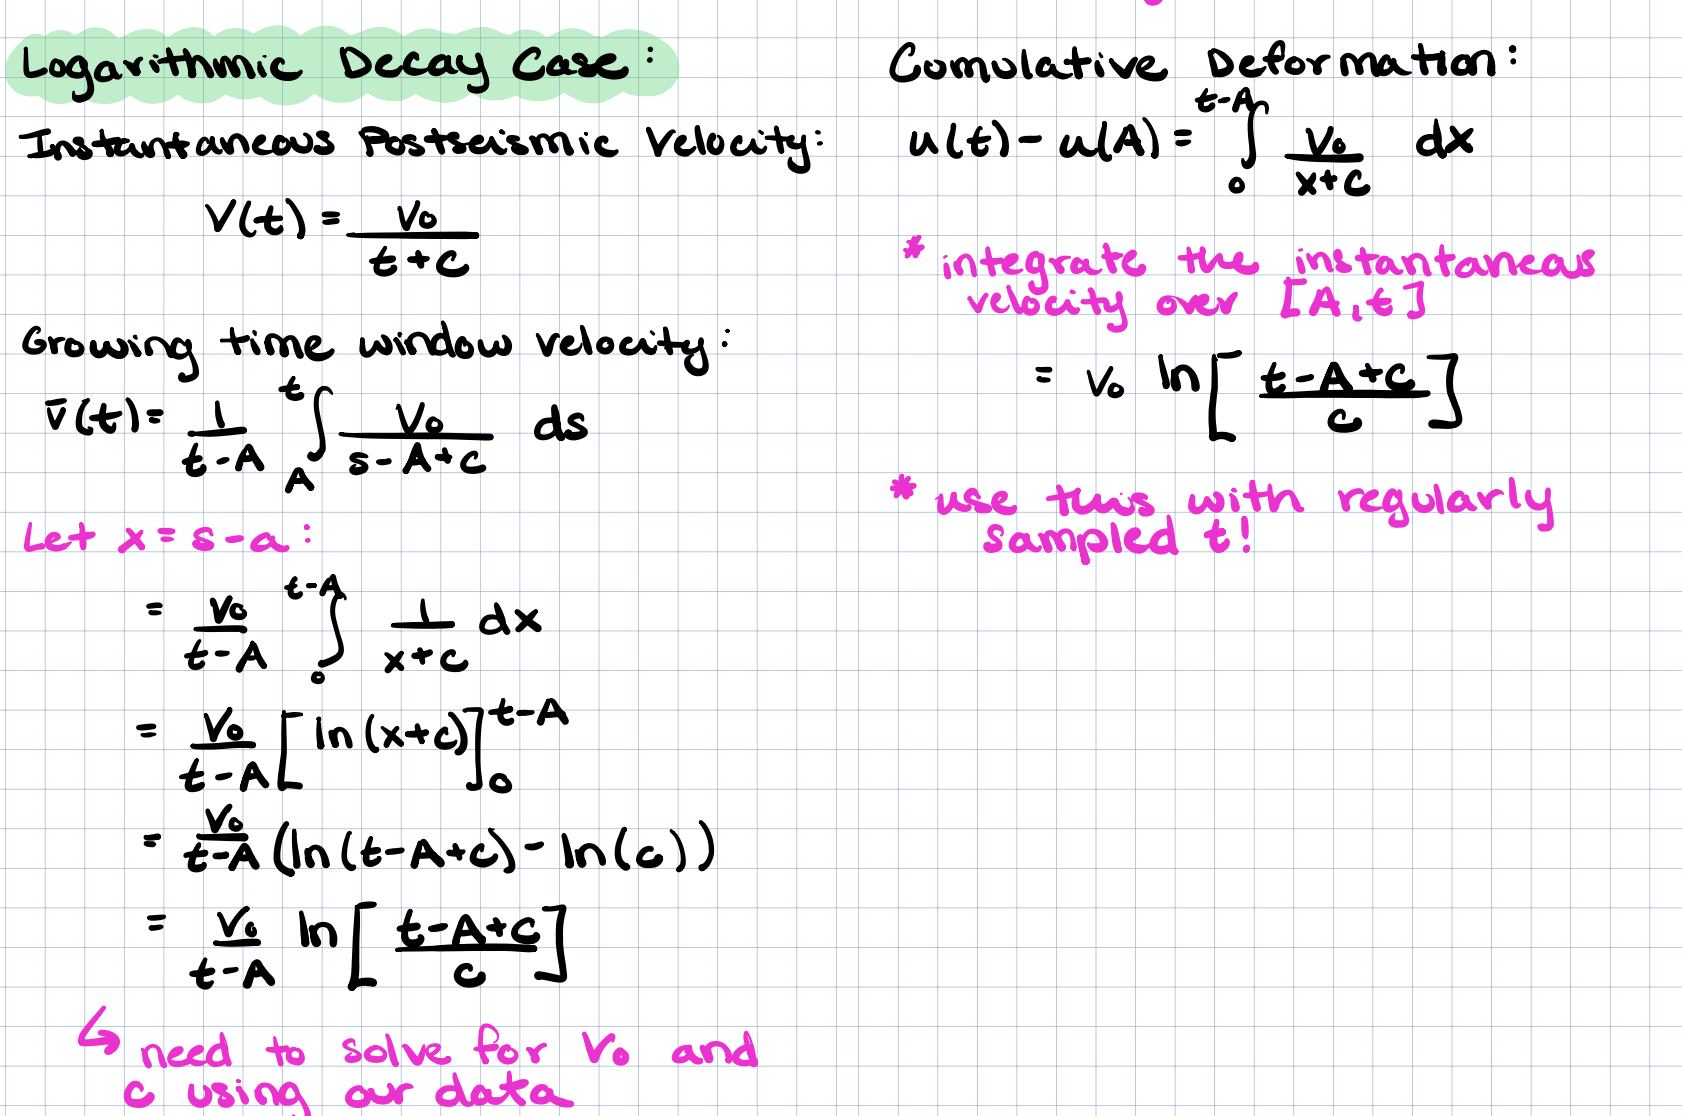 Logarithmic Decay Case:
Instantaneous Postseismic Velocity:
V(t) = V₀ / (t + C)
Growing time window velocity:
v̄(t) = 1/(t-A) ∫_A^t V₀/(s-A+C) ds
Let x = s-a:
= V₀/(t-A) ∫_0^(t-A) 1/(x+C) dx
= V₀/(t-A) [ln(x+c)]_0^(t-A)
= V₀/(t-A) (ln(t-A+c) - ln(c))
= V₀/(t-A) ln[(t-A+C)/C]
↳ need to solve for V₀ and
c using our data
Cumulative Deformation:
u(t) - u(A) = ∫_0^(t-A) V₀/(x+C) dx
* integrate the instantaneous
velocity over [A,t]
= V₀ ln[(t-A+C)/C]
* use this with regularly
sampled t!